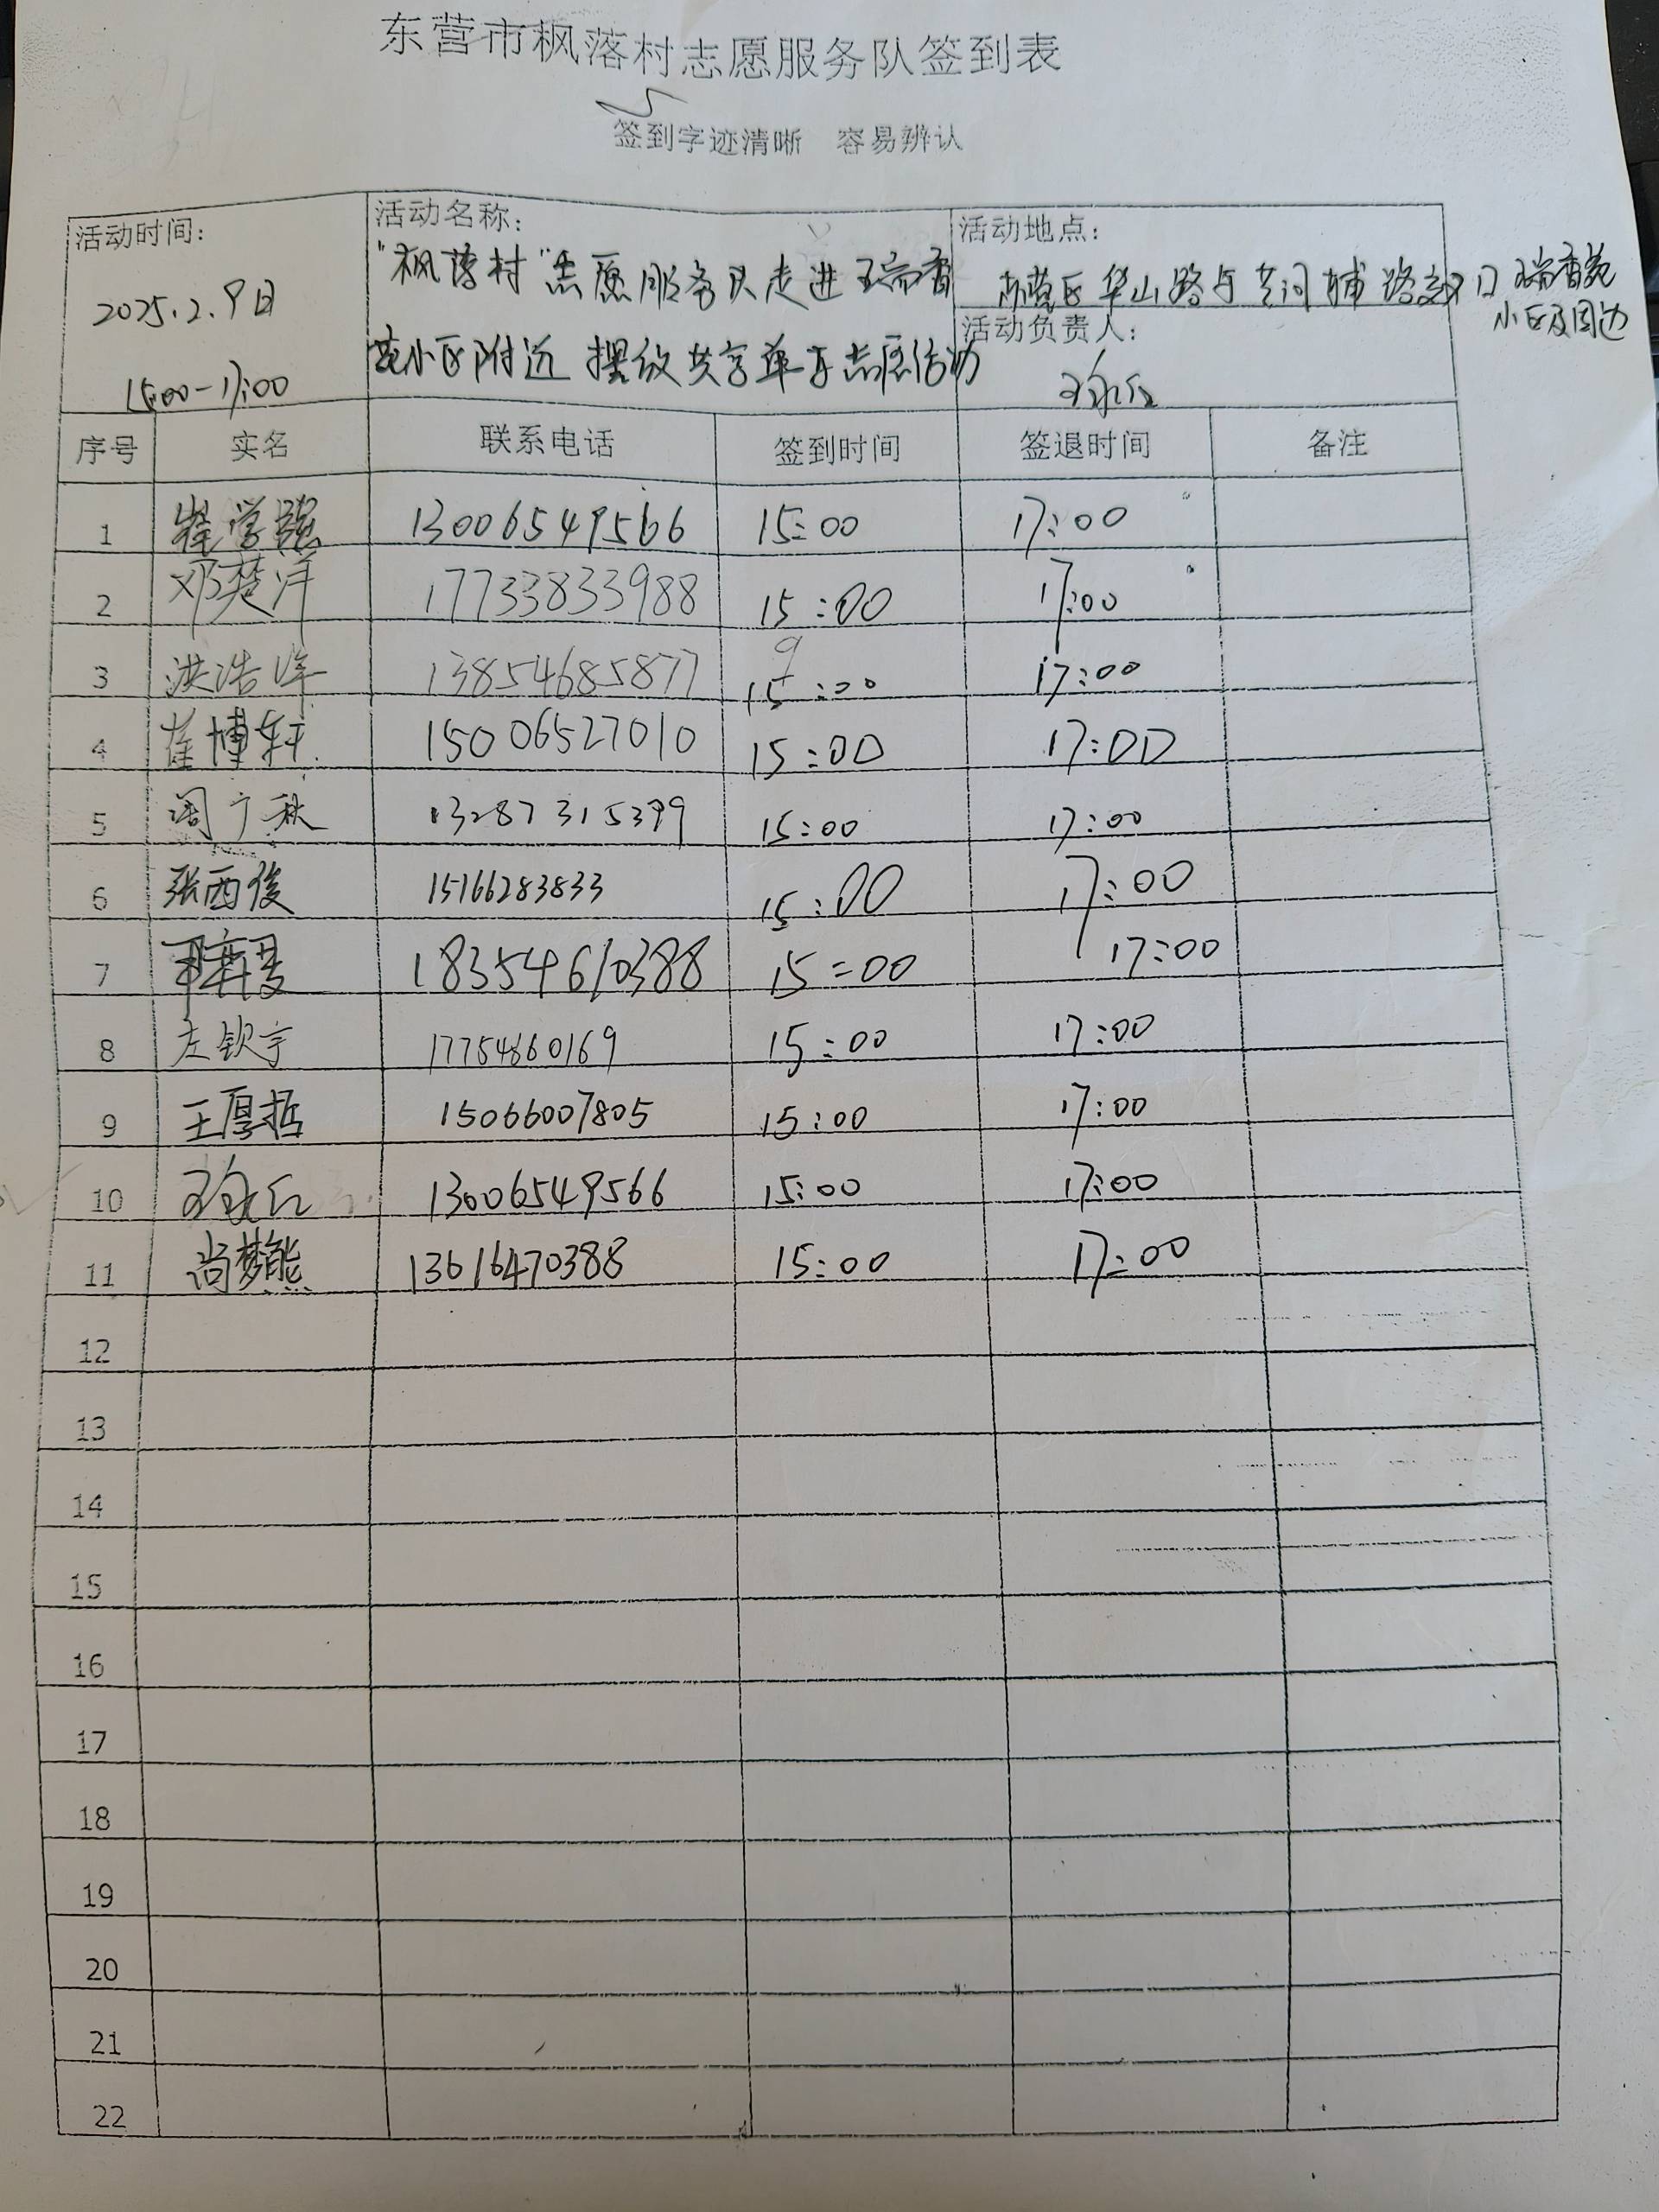 东营市枫落村志愿服务队签到表
签到字迹清晰 容易辨认
活动时间:
2025.2.9日
15:00-17:00
活动名称:
"枫落村"志愿服务队走进瑞香
苑小区附近 摆放共享单车志愿活动
活动地点:
东营区华山路与黄河辅路交叉口瑞香苑
小区及周边
活动负责人:
序号 实名 联系电话 签到时间 签退时间 备注
1 崔学强 13006549566 15:00 17:00
2 邓楚洋 17733833988 15:00 17:00
3 洪浩洋 13854685877 15:00 17:00
4 崔博轩 15006527010 15:00 17:00
5 周广秋 13287315399 15:00 17:00
6 张西俊 15166283833 15:00 17:00
7 18354610388 15:00 17:00
8 左钦宇 17754860169 15:00 17:00
9 王厚哲 15066007805 15:00 17:00
10 13006549566 15:00 17:00
11 尚梦熊 13616470388 15:00 17:00
12
13
14
15
16
17
18
19
20
21
22